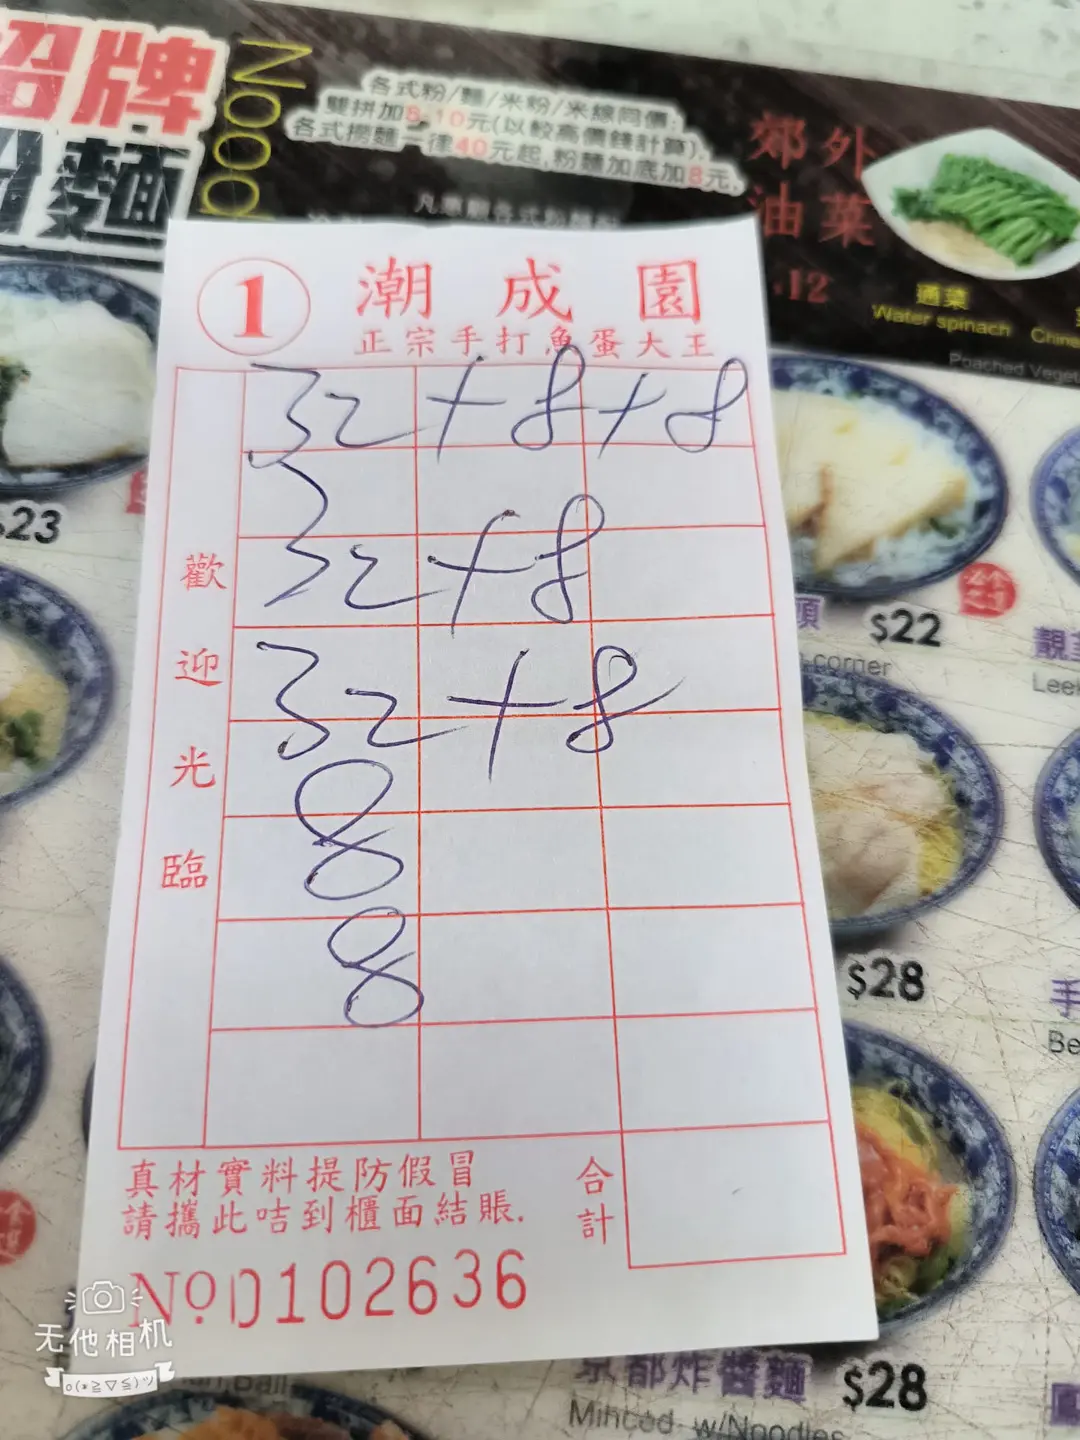 招牌
粉麵
Nood
各式粉/麵/米粉/米線同價,
雙拼加8-10元(以較高價錢計算),
各式撈麵一律40元起,粉麵加底加8元,
郊外
油菜
.12
通菜
Water spinach
Chine
Poached Veget
1
潮成園
正宗手打魚蛋大王
歡迎光臨
32+8+8
3
32+8
32+8
8
8
真材實料提防假冒
請攜此咭到櫃面結賬.
合計
No 0102636
$23
頭
$22
corner
靚
Leel
$28
手
Be
京都炸醬麵
$28
Minced w/Noodles
Ball
无他相机